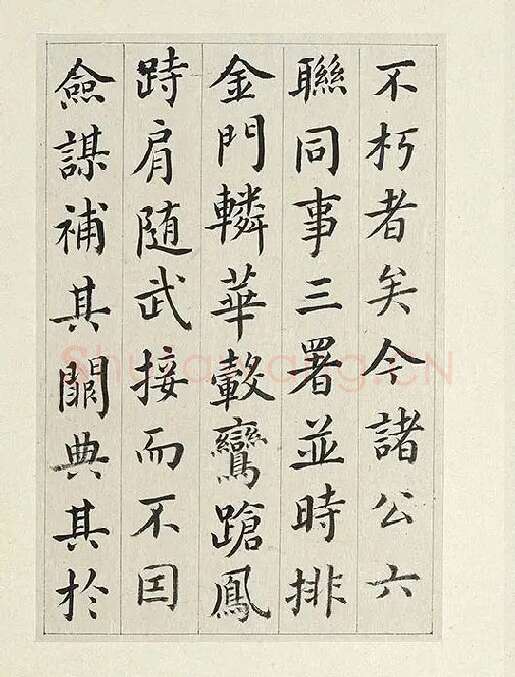 不朽者矣今諸公六
聯同事三署並時排
金門轔華轂鸞蹌鳳
跱肩随武接而不囙
僉謀補其闕典其於
Shufawang.CN